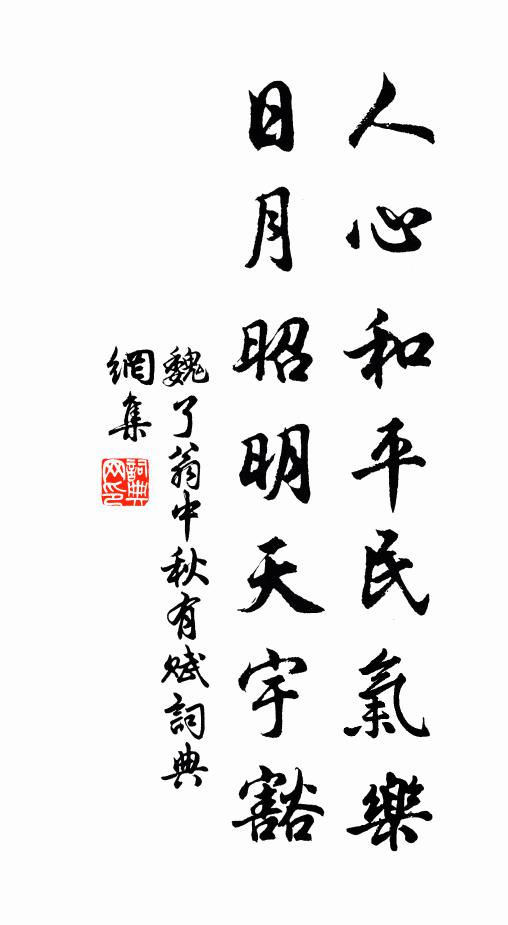 人心和平民氣樂
日月昭明天宇豁
魏了翁中秋有賦詞典
網集
詞典
网印